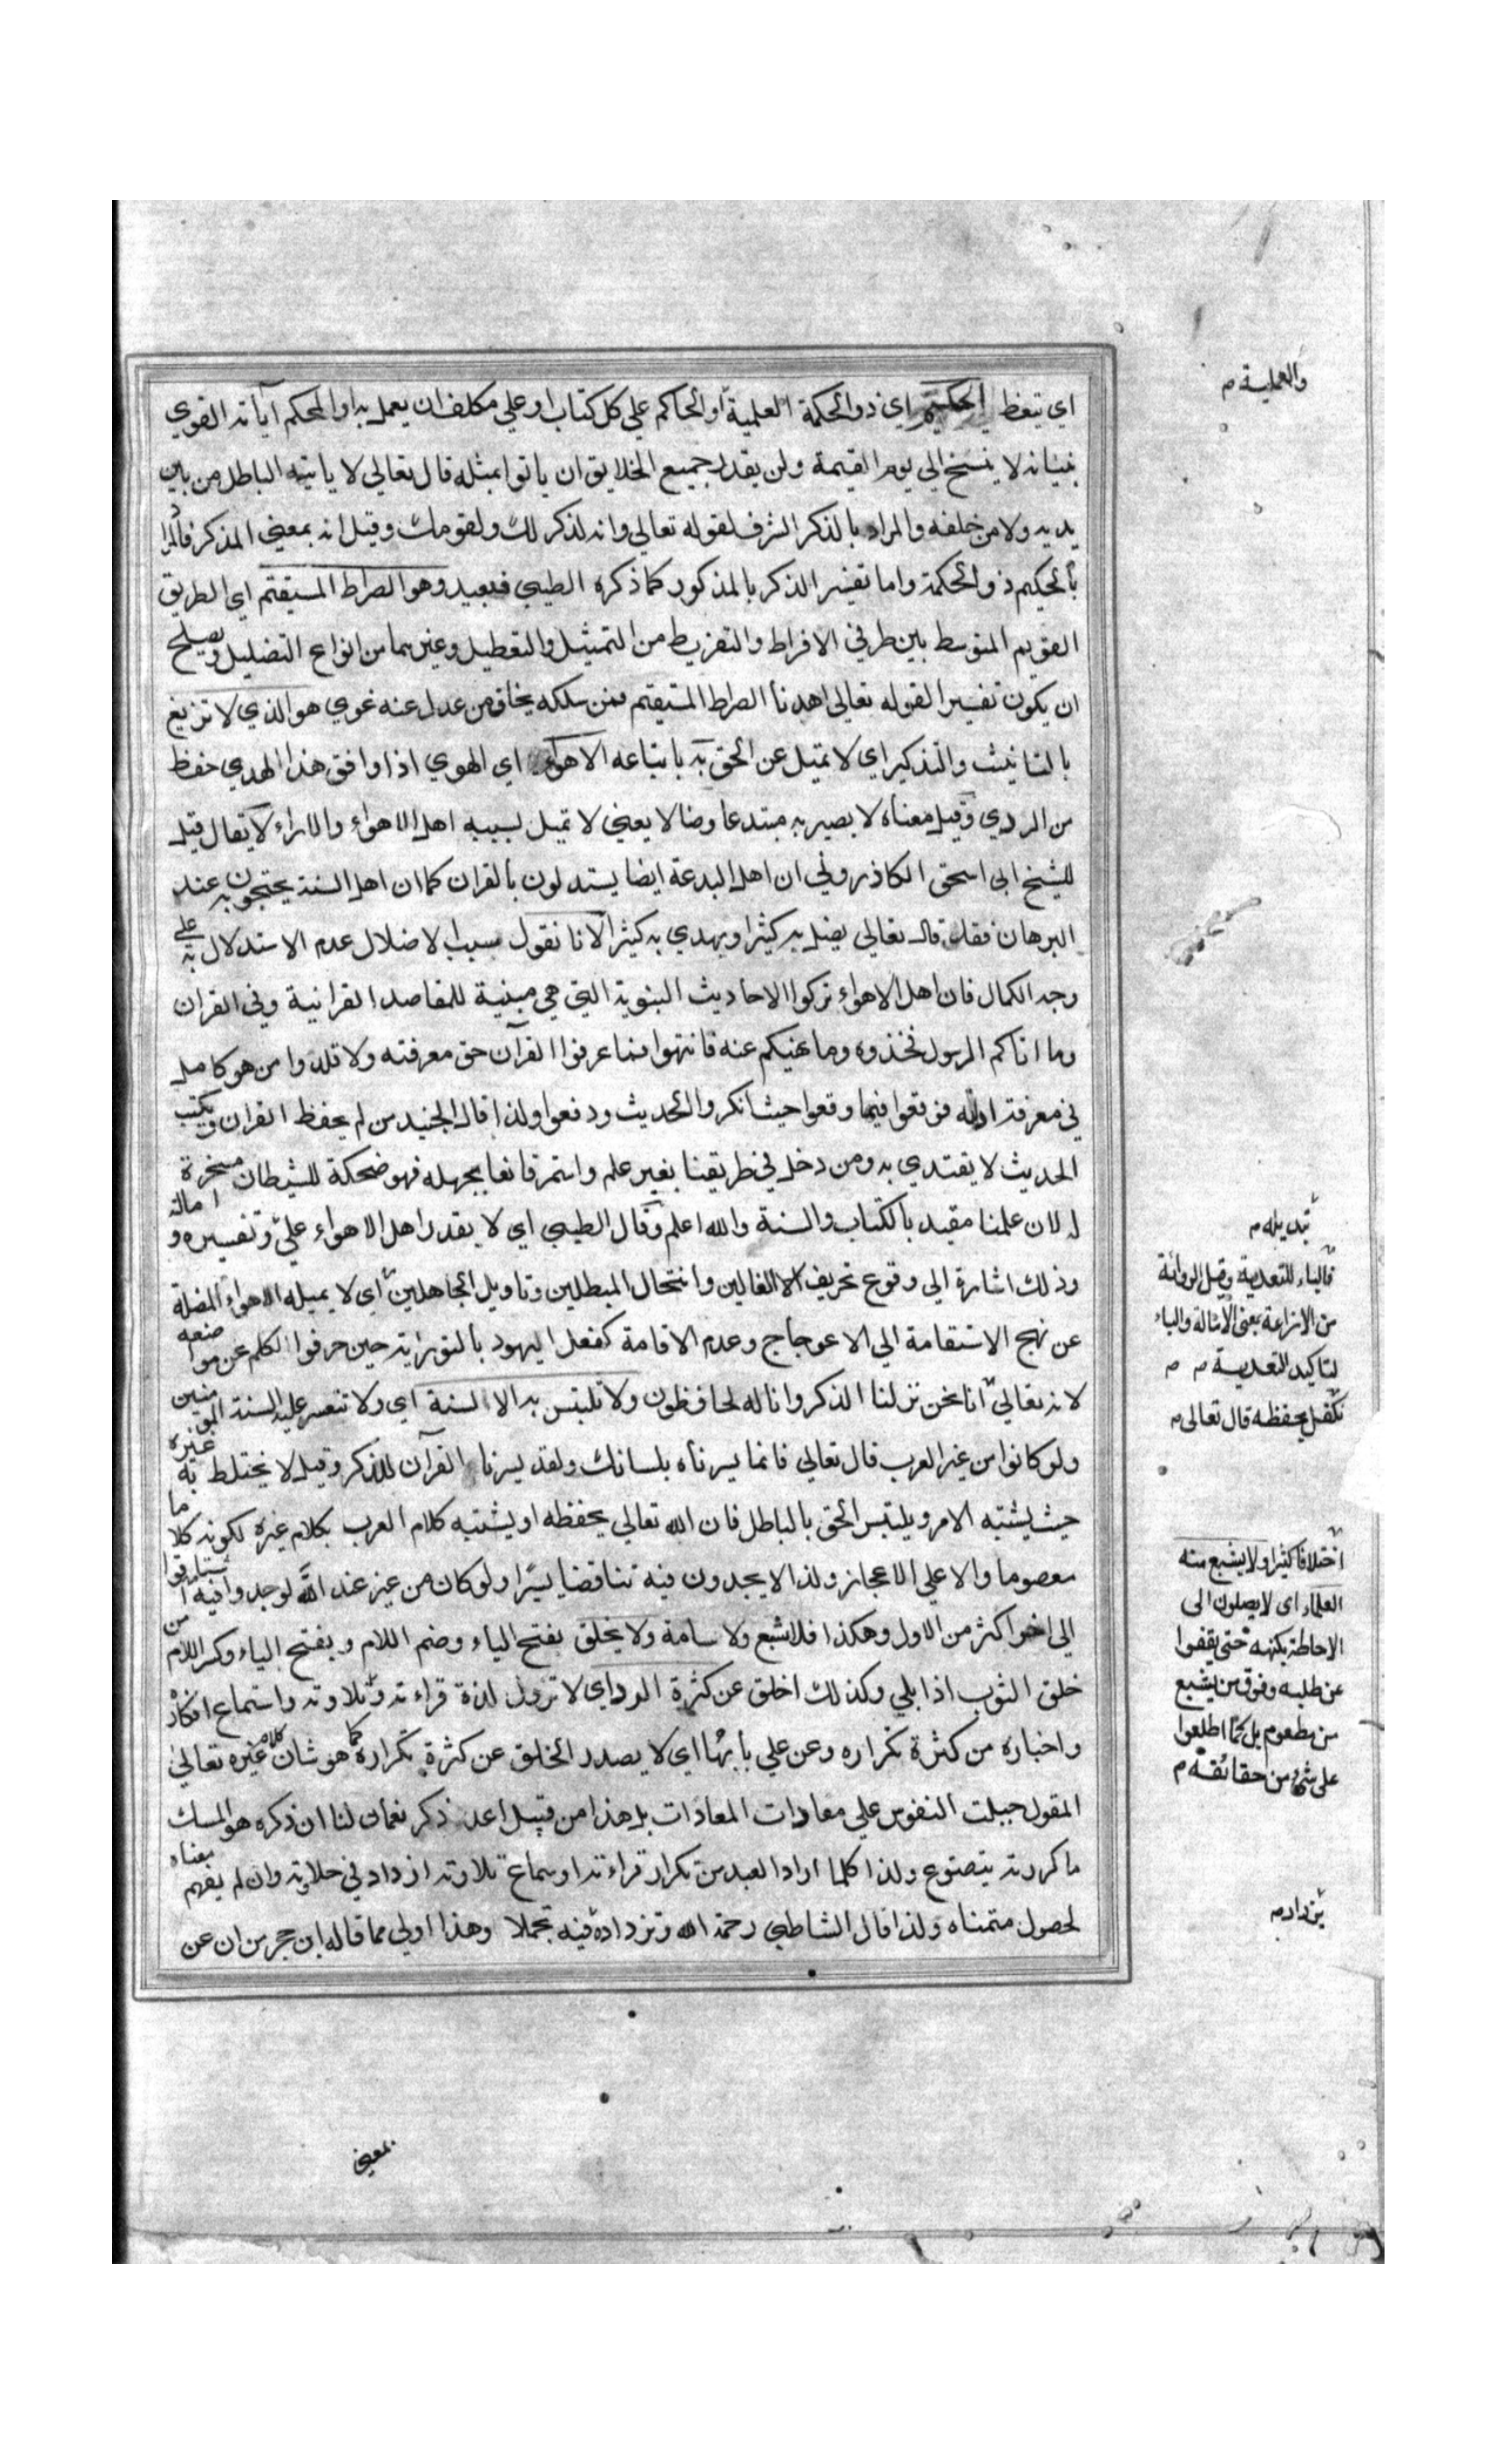 اي يتعظ الحكيم اي ذو الحكمة العلمية او الحاكم علي كل كتاب او علي مكلف ان يعمل به او المحكم آياته القوي
بنيانه لا ينسخ الي يوم القيمة ولن يقدر جميع الخلايق ان ياتوا بمثله قال تعالي لا ياتيه الباطل من بين
يديه ولا من خلفه والمراد بالذكر الشرف لقوله تعالي وانه لذكر لك ولقومك وقيل انه بمعني المذكر فالمراد
بالحكيم ذو الحكمة واما تفسير الذكر بالمذكور كما ذكره الطيبي فبعيد وهو الصراط المستقيم اي الطريق
القويم المتوسط بين طرفي الافراط والتفريط من التمثيل والتعطيل وغيرهما من انواع التضليل ويصلح
ان يكون تفسيرا لقوله تعالي اهدنا الصراط المستقيم فمن سلكه نجا ومن عدل عنه غوي هو الذي لا تزيغ
بالتانيث والتذكير اي لا تميل عن الحق به باتباعه الاهواء اي الهوي اذا وافق هذا الهدي حفظ
من الردي وقيل معناه لا يصير به مبتدعا وضالا يعني لا تميل بسببه اهل الاهواء والاراء لا يقال قيل
للشيخ ابي اسحق الكاذروني ان اهل البدعة ايضا يستدلون بالقران كما ان اهل السنة يحتجون به عند
البرهان فقال قال تعالي يضل به كثيرا ويهدي به كثيرا لانا نقول سبب الاضلال عدم الاستدلال به علي
وجه الكمال فان اهل الاهواء تركوا الاحاديث النبوية التي هي مبنية للمقاصد القرانية وفي القران
وما اتاكم الرسول فخذوه وما نهيكم عنه فانتهوا فما عرفوا القرآن حق معرفته ولا قلدوا من هو كامل
في معرفة ادلته فوقعوا فيما وقعوا حيث انكروا الحديث ودفعوا ولذا قال الجنيد من لم يحفظ القران ويكتب
الحديث لا يقتدي به ومن دخل في طريقنا بغير علم واستمر قانعا بجهله فهو ضحكة للشيطان مسخرة
له لان علمنا مقيد بالكتاب والسنة والله اعلم وقال الطيبي اي لا يقدر اهل الاهواء علي وتفسيره وامالة
وذلك اشارة الي وقوع تحريف الغالين وانتحال المبطلين وتاويل الجاهلين اي لا يميله الاهواء المضلة
عن نهج الاستقامة الي الاعوجاج وعدم الاقامة كفعل اليهود بالتوراية حين حرفوا الكلم عن مواضعه
لانه تعالي انا نحن نزلنا الذكر وانا له لحافظون ولا تلبتس به الالسنة اي ولا تتعسر عليه السنة المؤمنين
ولو كانوا من غير العرب قال تعالي فانما يسرناه بلسانك ولقد يسرنا القرآن للذكر وقيل لا يختلط به غيره
حيث يشتبه الامر ويلتبس الحق بالباطل فان الله تعالي يحفظه او يشتبه كلام العرب بكلام غيره لكونه كلاما
معصوما والا علي الاعجاز ولذا لا يجدون فيه تناقضا يسيرا ولو كان من عيز عند الله لوجدوا فيه اشتاقوا
الي اخر اكثر من الاول وهكذا فلا شبع ولا سامة ولا يخلق بفتح الياء وضم اللام وبفتح الياء وكسر اللام من
خلق الثوب اذا بلي وكذلك اخلق عن كثرة الرد اي لا تزول لذة قراءته وتلاوته واستماع اذكاره
واخباره من كثرة تكراره وعن علي بابها اي لا يصدر الخلق عن كثرة تكراره كما هو شان كلام غيره تعالي
المقول جبلت النفوس علي معادات المعادات بل هذا من قبيل اعد ذكر نعمان لنا ان ذكره هو المسك
ما كررته يتضوع ولذا كلما اراد العبد من تكرار قراءته او سماع تلاوته ازداد في حلاوته وان لم يفهم معناه
لحصول متمناه ولذا قال الشاطبي رحمة الله وتزداده فيه تجملا وهذا اولي مما قاله ابن حجر من ان عن
بمعني
والعملية م
تبديله م
فالباء للتعدية وقيل الرواية
من الازاغة بمعني الامالة والباء
لتاكيد التعدية م م
تكفل بحفظه قال تعالي م
اختلافا كثيرا ولا يشبع منه
العلماء اي لا يصلون الي
الاحاطة بكنهه حتي يقفوا
عن طلبه وقوف من يشبع
من مطعوم بل كلما اطلعوا
علي شيء من حقائقه م
يزداد م